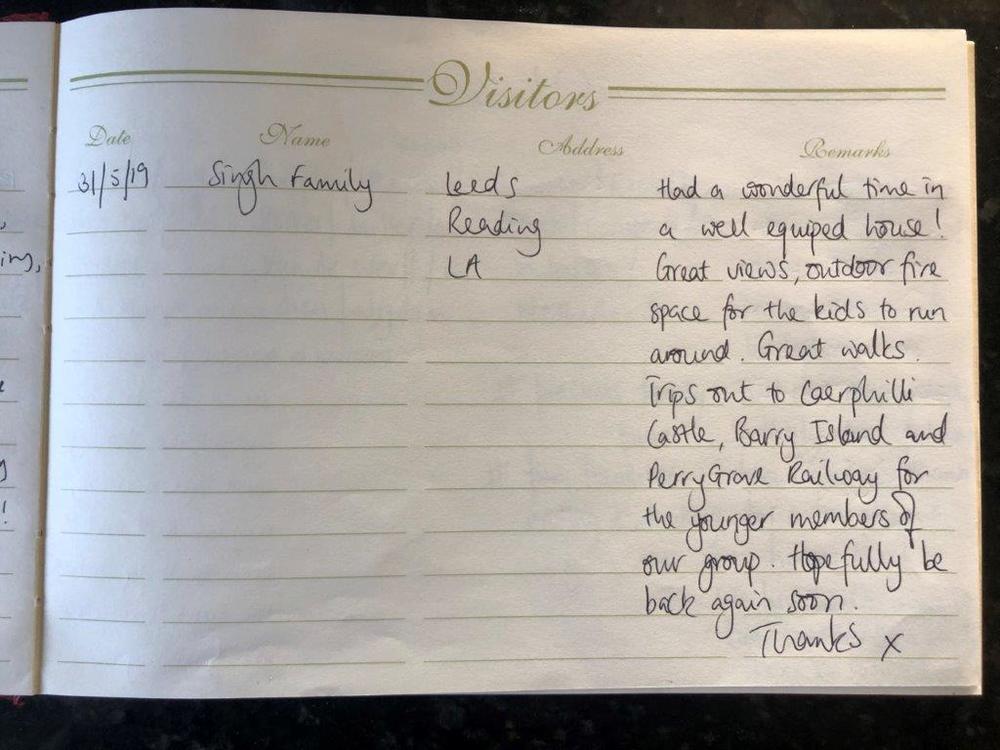 Visitors
Date Name Address Remarks
31/5/19 Singh Family Leeds Had a wonderful time in
Reading a well equiped house!
LA Great views, outdoor fire
space for the kids to run
around. Great walks.
Trips out to Caerphilli
Castle, Barry Island and
PerryGrove Railway for
the younger members of
our group. Hopefully be
back again soon.
Thanks x